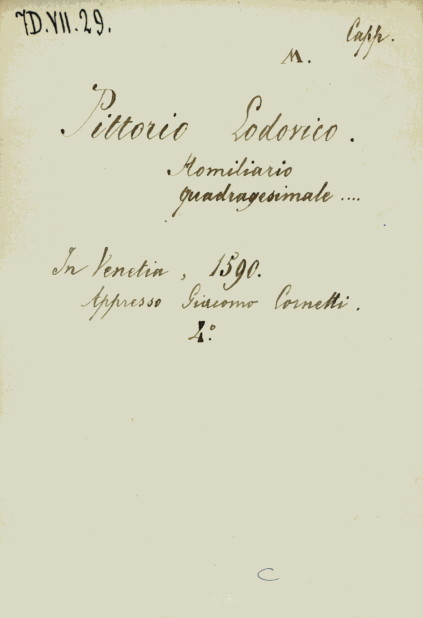 7D.VII.29.
Capp.
M.
Pittorio Lodovico.
Homiliario
quadragesimale ....
In Venetia, 1590.
Appresso Giacomo Cornetti.
4°.
C